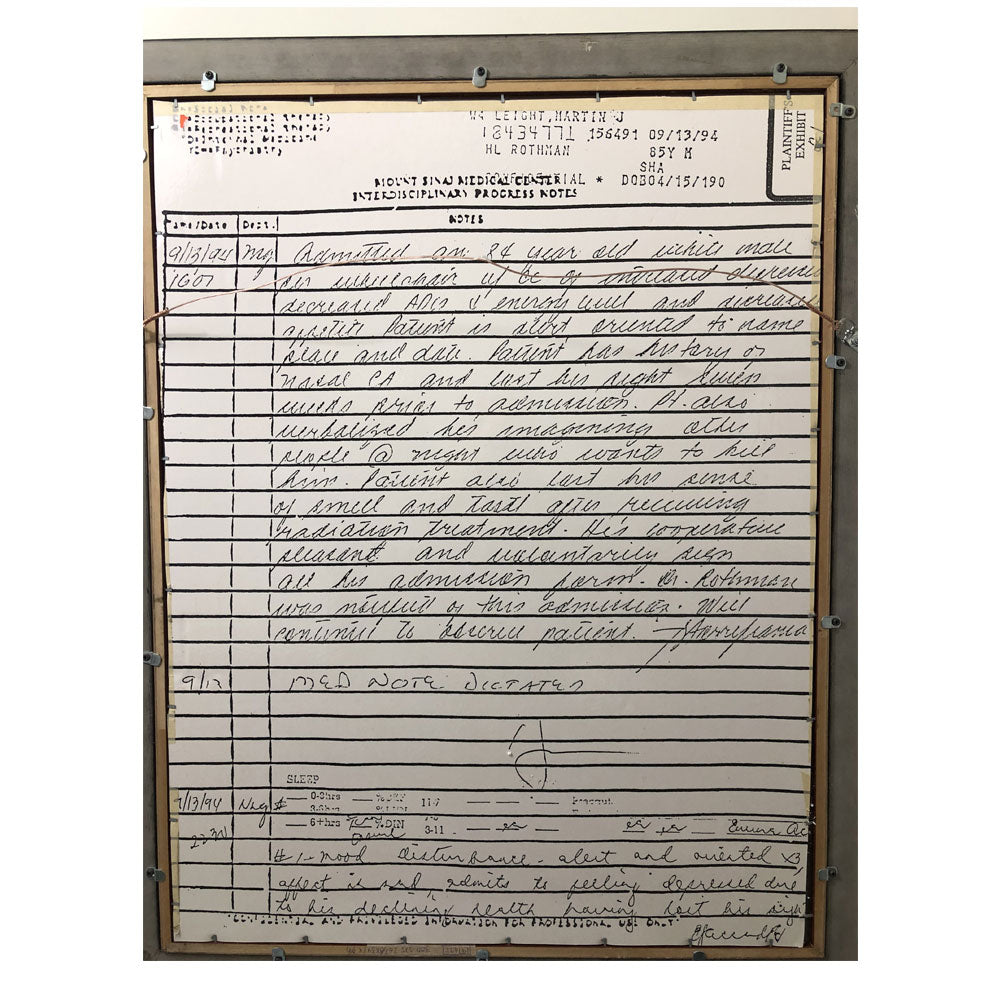 W4 LEIGHT, MARTIN J
18434771 156491 09/13/94
HL ROTHMAN 85Y M
SHA
MOUNT SINAI MEDICAL CENTER
* DOB04/15/190
INTERDISCIPLINARY PROGRESS NOTES
PLAINTIFF'S
EXHIBIT
Time/Date Dept. NOTES
9/13/94 Admitted an 84 year old white male
1607 in wheelchair
decreased ADLs & energy level and decrease
appetite Patient is alert oriented to name
place and date. Patient has history of
nasal CA and lost his sight seven
weeks prior to admission. Pt. also
verbalized his imagining other
people @ night who wants to kill
him. Patient also lost his sense
of smell and taste after receiving
radiation treatment. He's cooperative
pleasant and voluntarily sign
all his admission form. Dr. Rothman
was notified of this admission. Will
continue to observe patient.
9/13 MED NOTE DICTATED
SLEEP
0-3hrs 11-7
6+hrs %DIN 3-11
9/13/94
#1- mood disturbance - alert and oriented x3,
affect is sad, admits to feeling depressed due
to his declining health having lost his sight
"CONFIDENTIAL AND PRIVILEGED INFORMATION FOR PROFESSIONAL USE ONLY"